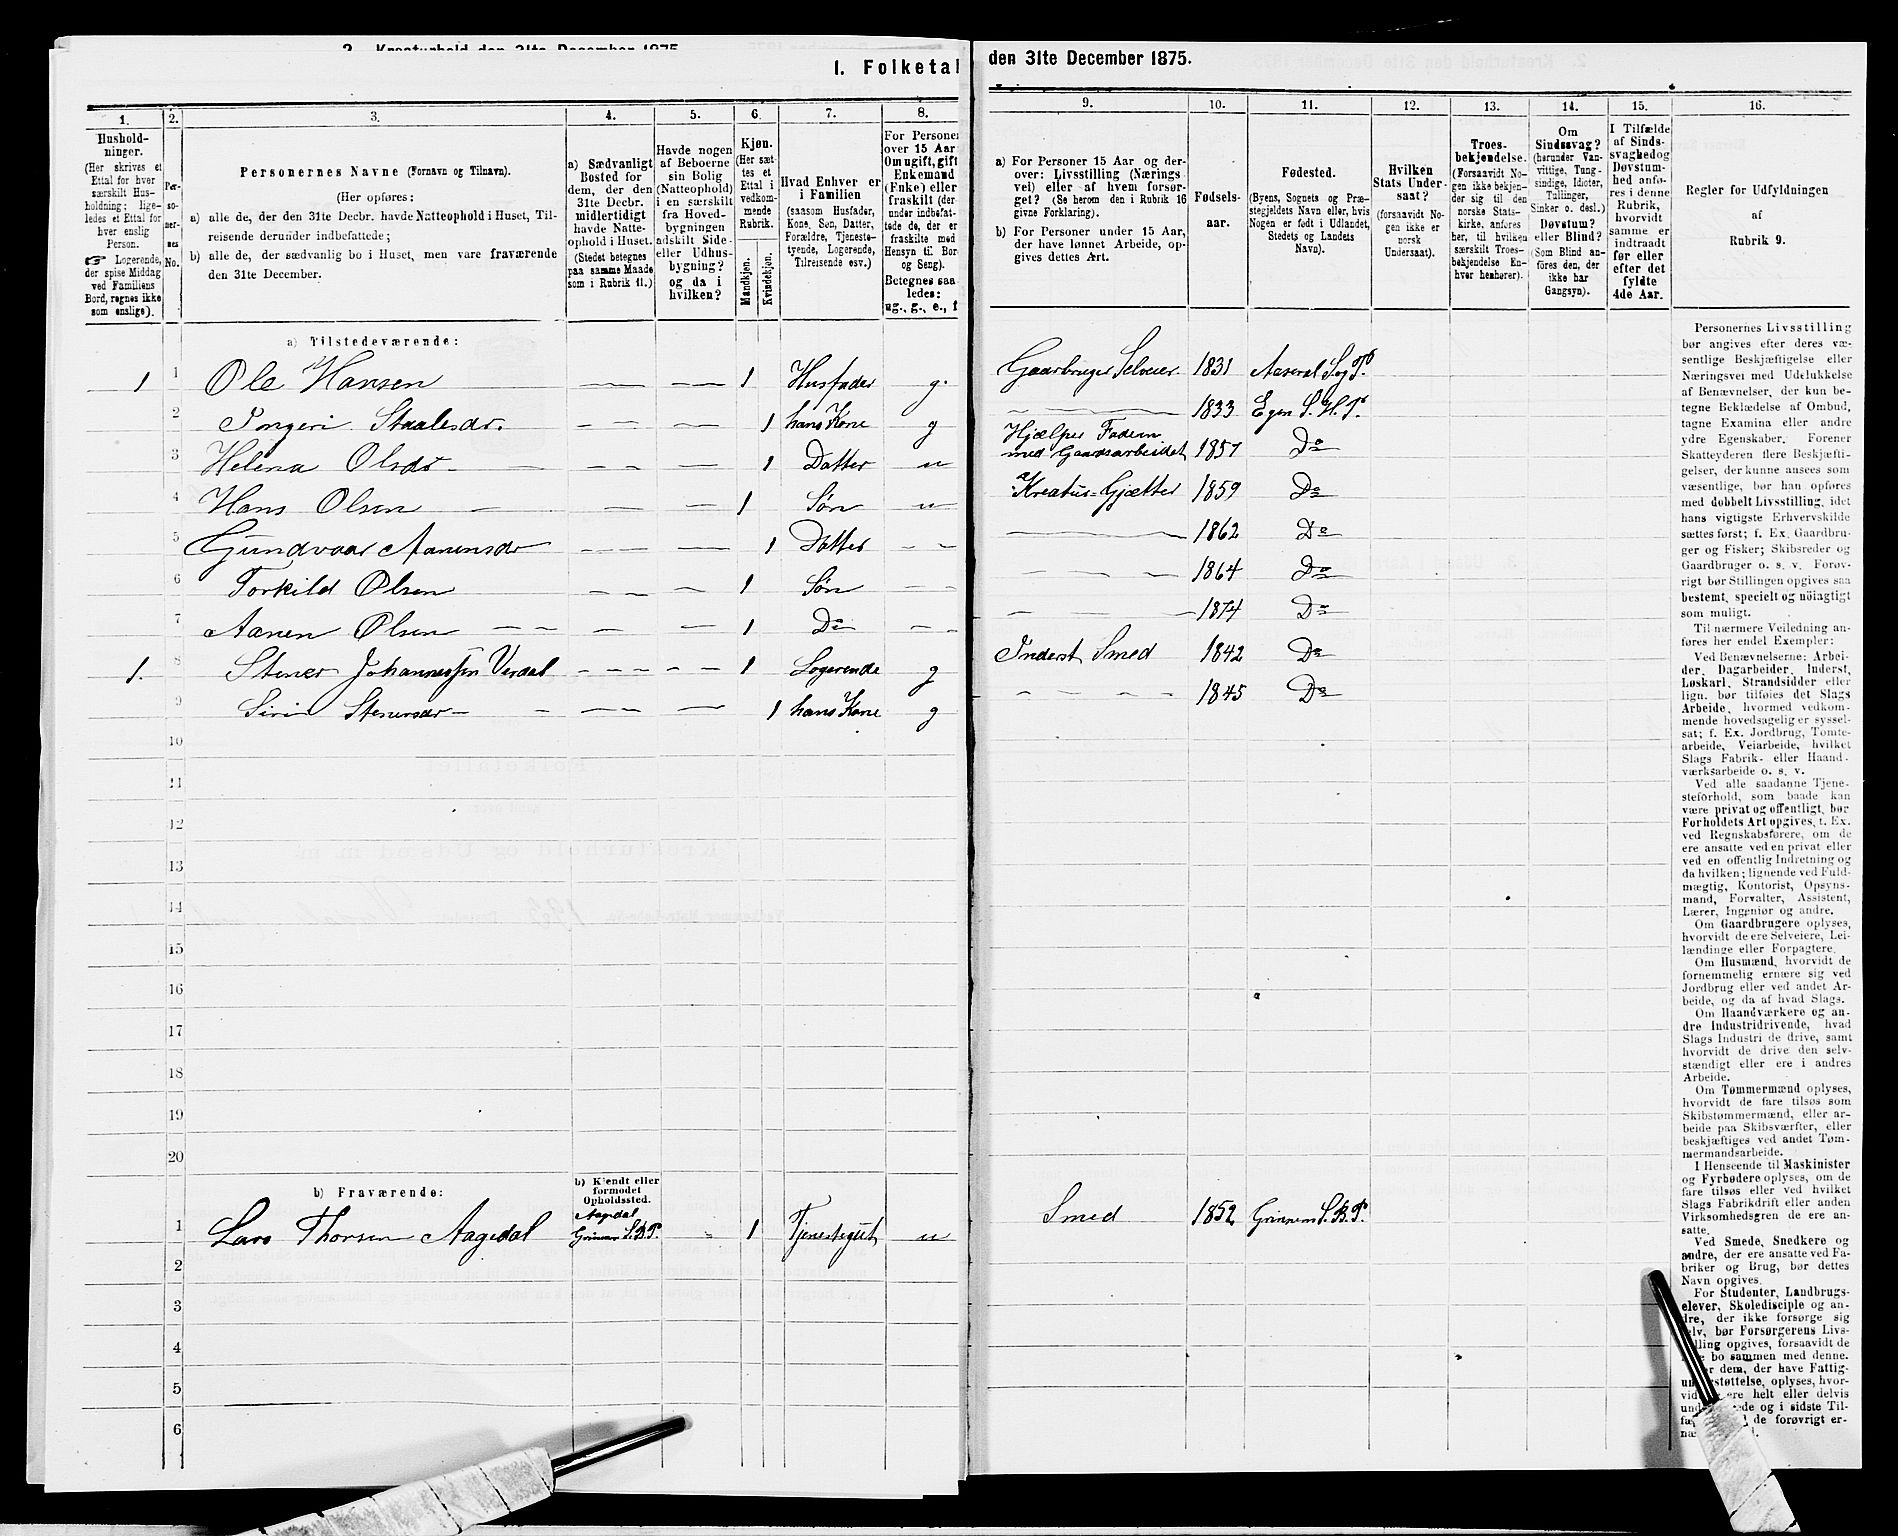 2. Kreaturhold den 31te December 1875
I. Folketal
den 31te December 1875.
1.
Hushold-
ninger.
(Her skrives et
Ettal for hver
særskilt Hus-
holdning; lige-
ledes et Ettal for
hver enslig
Person.
☞ Logerende,
der spise Middag
ved Familiens
Bord, regnes ikke
som enslige).
2.
Per-
so-
ner-
nes
No.
3.
Personernes Navne (Fornavn og Tilnavn).
(Her opføres:
a) alle de, der den 31te Decbr. havde Natteophold i Huset, Til-
reisende derunder indbefattede;
b) alle de, der sædvanlig bo i Huset, men vare fraværende
den 31te December.
4.
a) Sædvanligt
Bosted for
dem, der den
31te Decbr.
midlertidigt
havde Natte-
ophold i Huset.
(Stedet betegnes
paa samme Maade
som i Rubrik 11.)
5.
Havde nogen
af Beboerne
sin Bolig
(Natteophold)
i en særskilt
fra Hoved-
bygningen
adskilt Side-
eller Udhus-
bygning?
og da i
hvilken?
6.
Kjøn.
(Her sæt-
tes et
Ettal i
vedkom-
mende
Rubrik.
Mandkjøn.
Kvindekjøn.
7.
Hvad Enhver er
i Familien
(saasom Husfader,
Kone, Søn, Datter,
Forældre, Tjeneste-
tyende, Logerende,
Tilreisende osv.)
8.
For Personer
over 15 Aar:
Om ugift, gift
Enkemand
(Enke) eller
fraskilt (der-
under indbefat-
tede de, der er
fraskilte med
Hensyn til Bord
og Seng).
Betegnes saa-
ledes:
ug., g., e., f
9.
a) For Personer 15 Aar og der-
over: Livsstilling (Nærings-
vei) eller af hvem forsør-
get? (Se herom den i Rubrik 16
givne Forklaring).
b) For Personer under 15 Aar,
der have lønnet Arbeide, op-
gives dettes Art.
10.
Fødsels-
aar.
11.
Fødested.
(Byens, Sognets og Præ-
stegjeldets Navn eller, hvis
Nogen er født i Udlandet,
Stedets og Landets
Navn).
12.
Hvilken
Stats Under-
saat?
(forsaavidt No-
gen ikke er
norsk
Undersaat).
13.
Troes-
bekjendelse.
(Forsaavidt No-
gen ikke bekjen-
der sig til den
norske Stats-
kirke, anføres
her, til hvilken
særskilt Troes-
bekjendelse En-
hver henhører).
14.
Om
Sindssvag?
(herunder Van-
vittige, Tung-
sindige, Idioter,
Tullinger,
Sinker o. desl.)
Døvstum?
eller Blind?
(Som Blind an-
føres den, der
ikke har
Gangsyn).
15.
I Tilfælde
af Sinds-
svaghed og
Døvstum-
hed anfø-
res i denne
Rubrik,
hvorvidt
samme er
indtraadt
før eller
efter det
fyldte
4de Aar.
16.
Regler for Udfyldningen
af
Rubrik 9.
a) Tilstedeværende:
1 1 Ole Hansen 1 Husfader g. Gaardbruger Selveier. 1831 Aaseral S. og P.
2 Ingeri Staalesdr. 1 hans Kone g 1833 Egen S. H. P.
3 Helena Olsdr 1 Datter u Hjælper Faderen
med Gaardsarbeidet 1857 Do
4 Hans Olsen 1 Søn u Kreatur-Gjætter 1859 Do
5 Gundvaar Aanensdr 1 Datter 1862 Do
6 Torkild Olsen 1 Søn 1864 Do
7 Aanen Olsen 1 Do 1874 Do
1. 8 Stener Johannessen Verdal 1 Logerende g Inderst Smed 1842 Do
9 Siri Stenersdr 1 hans Kone g 1845 Do
10
11
12
13
14
15
16
17
18
19
20
b) Fraværende:
b) Kjendt eller
formodet
Opholdssted.
1 Lars Thorsen Aagedal Aagedal
Grinnem S. B. P. 1 Tjenestegut u Smed 1852 Grinnem S. B. P.
2
3
4
5
6
Personernes Livsstilling
bør angives efter deres væ-
sentlige Beskjæftigelse eller
Næringsvei med Udelukkelse
af Benævnelser, der kun be-
tegne Beklædelse af Ombud,
tagne Examina eller andre
ydre Egenskaber. Forener
Skatteyderen flere Beskjæfti-
gelser, der kunne ansees som
væsentlige, bør han opføres
med dobbelt Livsstilling, idet
hans vigtigste Erhvervskilde
sættes først; f. Ex. Gaardbru-
ger og Fisker; Skibsreder og
Gaardbruger o. s. v. Forøv-
rigt bør Stillingen opgives saa
bestemt, specielt og nøiagtigt
som muligt.
Til nærmere Veiledning an-
føres her endel Exempler:
Ved Benævnelserne: Arbei-
der, Dagarbeider, Inderst,
Løskarl, Strandsidder eller
lign. bør tilføies det Slags
Arbeide, hvormed vedkom-
mende hovedsagelig er syssel-
sat; f. Ex. Jordbrug, Tomte-
arbeide, Veiarbeide, hvilket
Slags Fabrik- eller Haand-
værksarbeide o. s. v.
Ved alle saadanne Tjene-
steforhold, som baade kan
være privat og offentligt, bør
Forholdets Art opgives, t. Ex.
ved Regnskabsførere, om de
ere ansatte ved en privat eller
ved en offentlig Indretning og
da hvilken; lignende ved Fuld-
mægtig, Kontorist, Opsyns-
mand, Forvalter, Assistent,
Lærer, Ingeniør og andre.
Om Gaardbrugere oplyses,
hvorvidt de ere Selveiere, Lei-
lændinge eller Forpagtere.
Om Husmænd, hvorvidt de
fornemmelig ernære sig ved
Jordbrug eller ved andet Ar-
beide, og da af hvad Slags.
Om Haandværkere og an-
dre Industridrivende, hvad
Slags Industri de drive, samt
hvorvidt de drive den selv-
stændigt eller ere i andres
Arbeide.
Om Tømmermænd oplyses,
hvorvidt de fare tilsøs som
Skibstømmermænd, eller ar-
beide paa Skibsværfter, eller
beskjæftiges ved andet Tøm-
mermandsarbeide.
I Henseende til Maskinister
og Fyrbødere oplyses, om de
fare tilsøs eller ved hvilket
Slags Fabrikdrift eller anden
Virksomhedsgren de ere an-
satte.
Ved Smede, Snedkere og
andre, der ere ansatte ved Fa-
briker og Brug, bør dettes
Navn opgives.
For Studenter, Landbrugs-
elever, Skoledisciple og an-
dre, der ikke forsørge sig
selv, bør Forsørgerens Livs-
stilling opgives, forsaavidt de
bo sammen med denne.
dem, der have Fattig-
understøttelse, oplyses, hvor-
ere helt eller delvis
og i sidste Til-
de forøvrigt er-